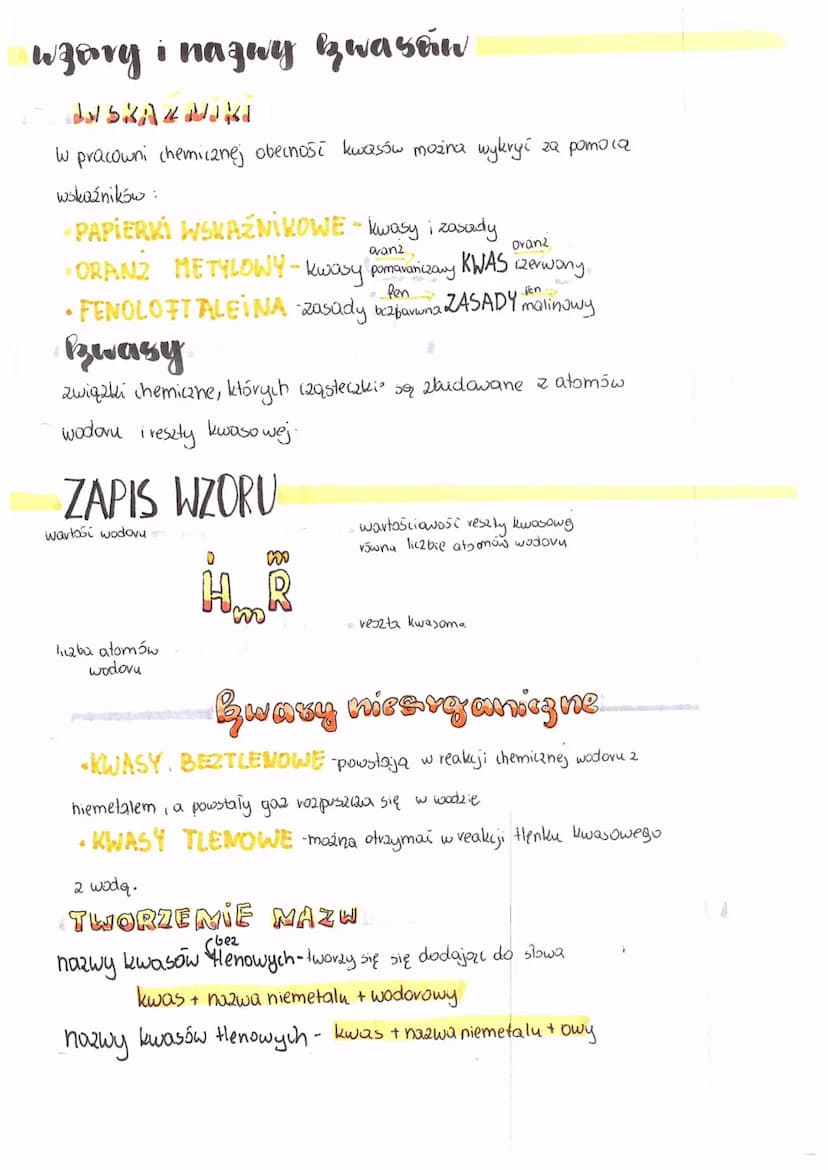 wzory i nazwy kwasów
WSKAŹNIKI
W pracowni chemicznej obecność kwasów można wykryć za pomocą
wskaźników:
• PAPIERKI WSKAŹNIKOWE - kwasy i zasady
oranż oranż
• ORANŻ METYLOWY - kwasy pomarańczowy KWAS czerwony
fen fen
• FENOLOFTALEINA - zasady bezbarwna ZASADY malinowy
kwasy
związki chemiczne, których cząsteczki są zbudowane z atomów
wodoru i reszty kwasowej
ZAPIS WZORU
wartość wodoru
wartościowość reszty kwasowej
równa liczbie atomów wodoru
I m
Hm R
reszta kwasowa
liczba atomów
wodoru
kwasy nieorganiczne
• KWASY BEZTLENOWE - powstają w reakcji chemicznej wodoru z
niemetalem, a powstały gaz rozpuszcza się w wodzie
• KWASY TLENOWE - można otrzymać w reakcji tlenku kwasowego
z wodą.
TWORZENIE NAZW
bez
nazwy kwasów tlenowych - tworzy się się dodając do słowa
kwas + nazwa niemetalu + wodorowy
nazwy kwasów tlenowych - kwas + nazwa niemetalu + owy